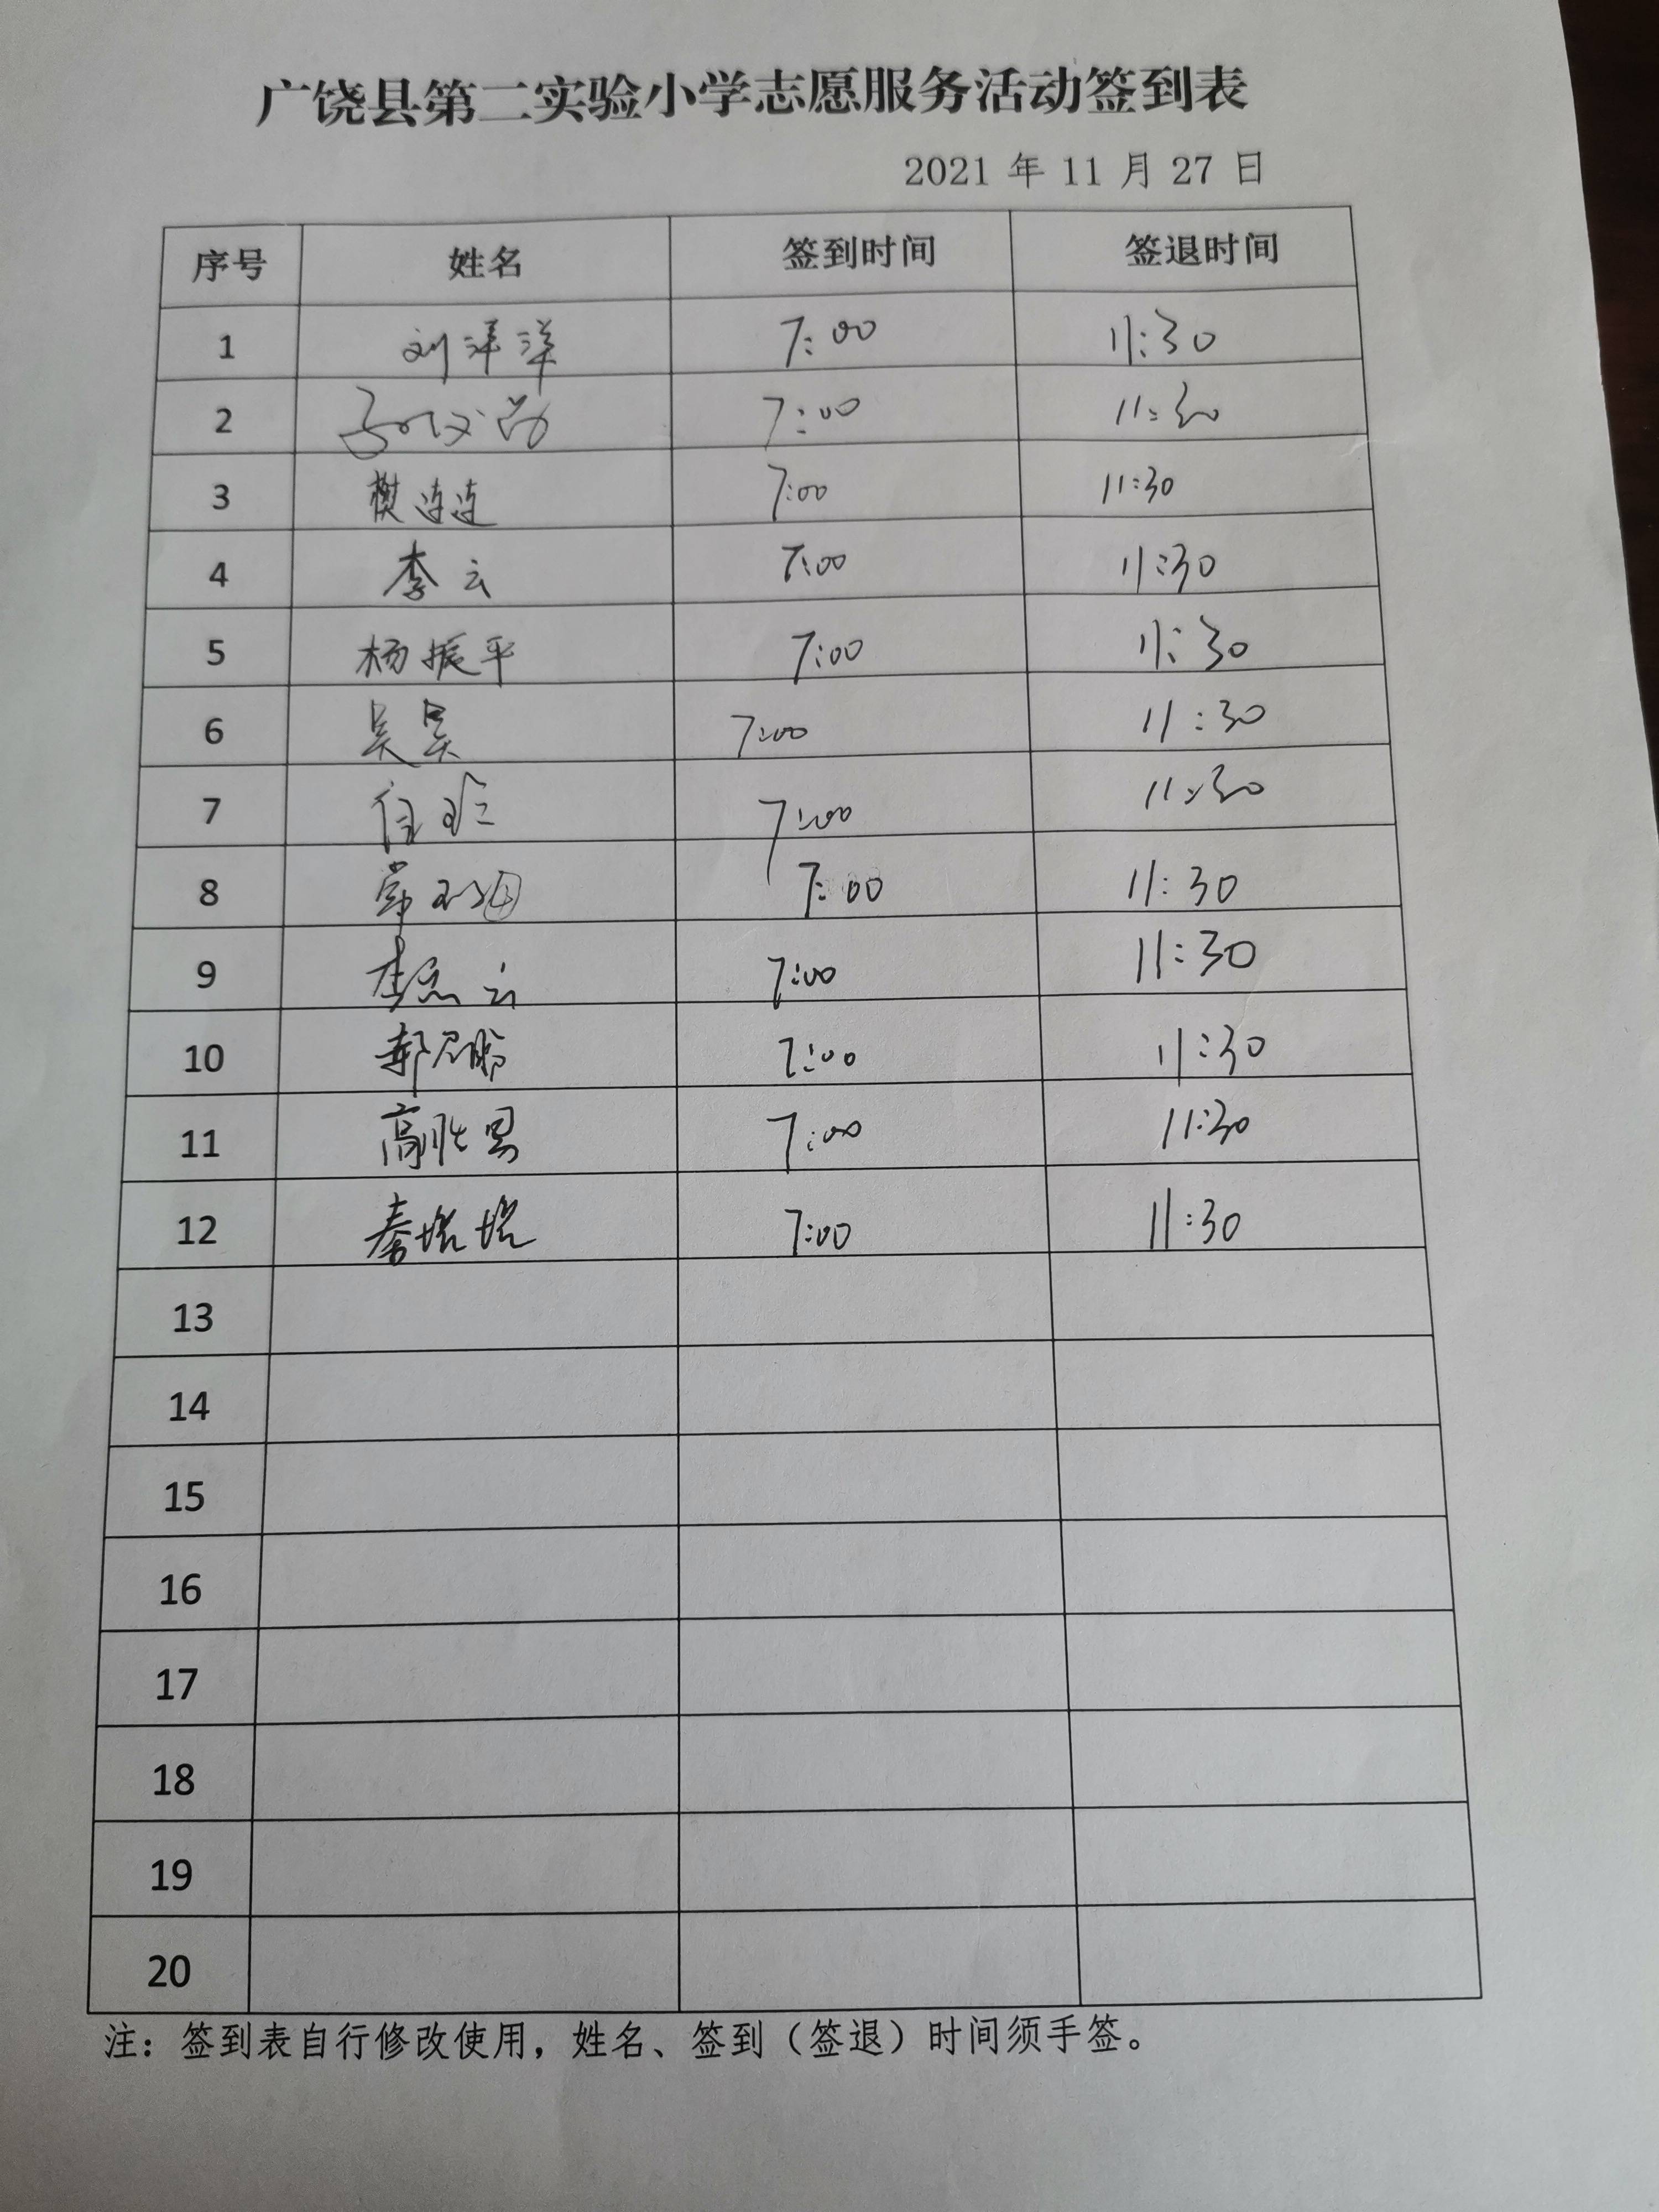 广饶县第二实验小学志愿服务活动签到表
2021 年 11 月 27 日
序号 姓名 签到时间 签退时间
1 刘洋洋 7:00 11:30
2 7:00 11:30
3 樊连连 7:00 11:30
4 李云 7:00 11:30
5 杨振平 7:00 11:30
6 吴昊 7:00 11:30
7 7:00 11:30
8 7:00 11:30
9 7:00 11:30
10 7:00 11:30
11 7:00 11:30
12 7:00 11:30
13
14
15
16
17
18
19
20
注：签到表自行修改使用，姓名、签到（签退）时间须手签。